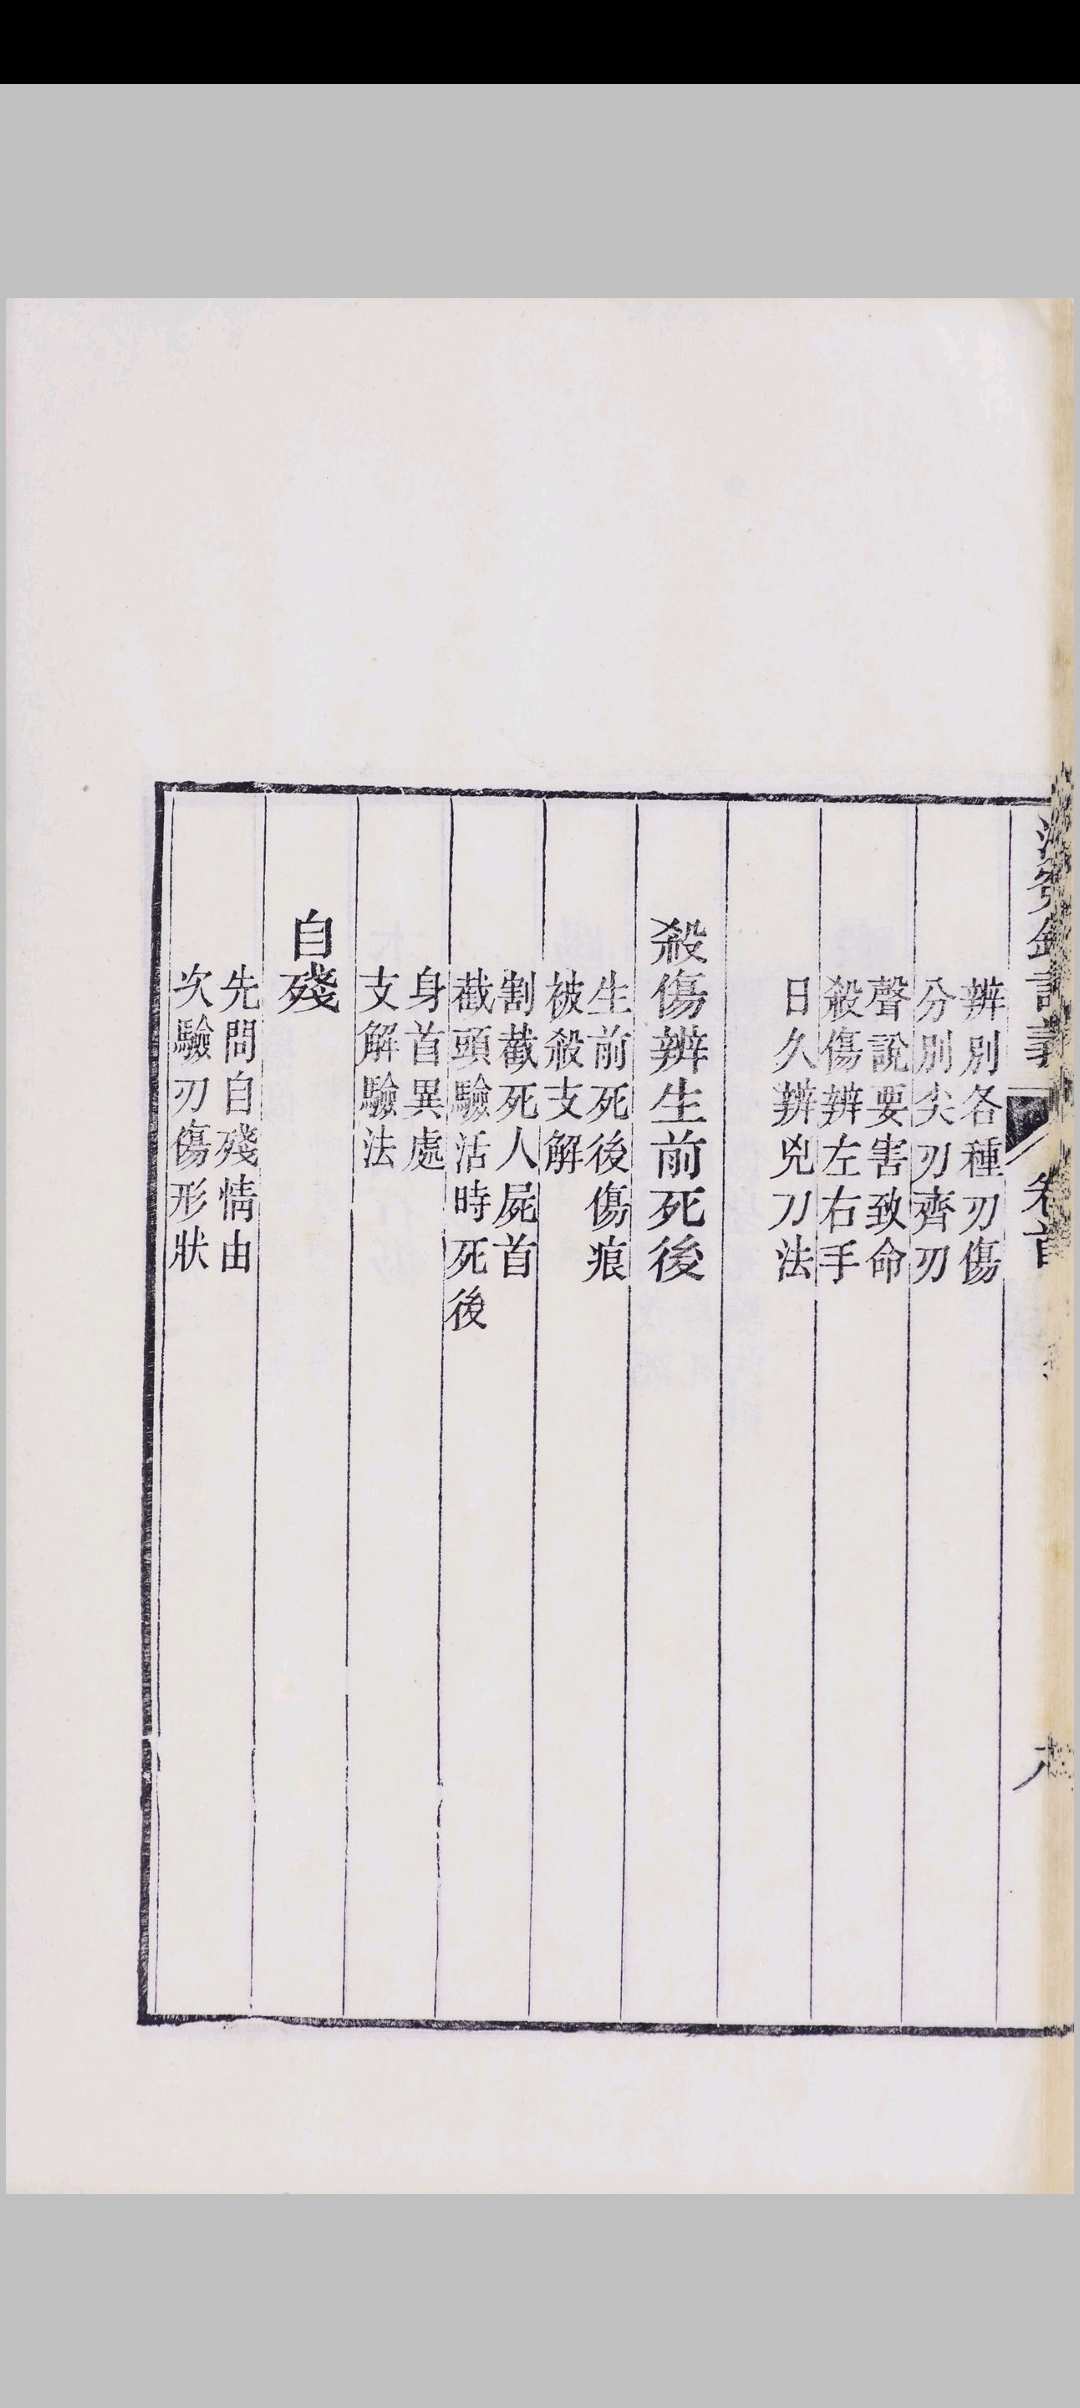 洗冤錄詳義
卷首
辨別各種刃傷
分別尖刃齊刃
聲說要害致命
殺傷辨左右手
日久辨兇刀法
殺傷辨生前死後
生前死後傷痕
被殺支解
割截死人屍首
截頭驗活時死後
身首異處
支解驗法
自殘
先問自殘情由
次驗刃傷形狀